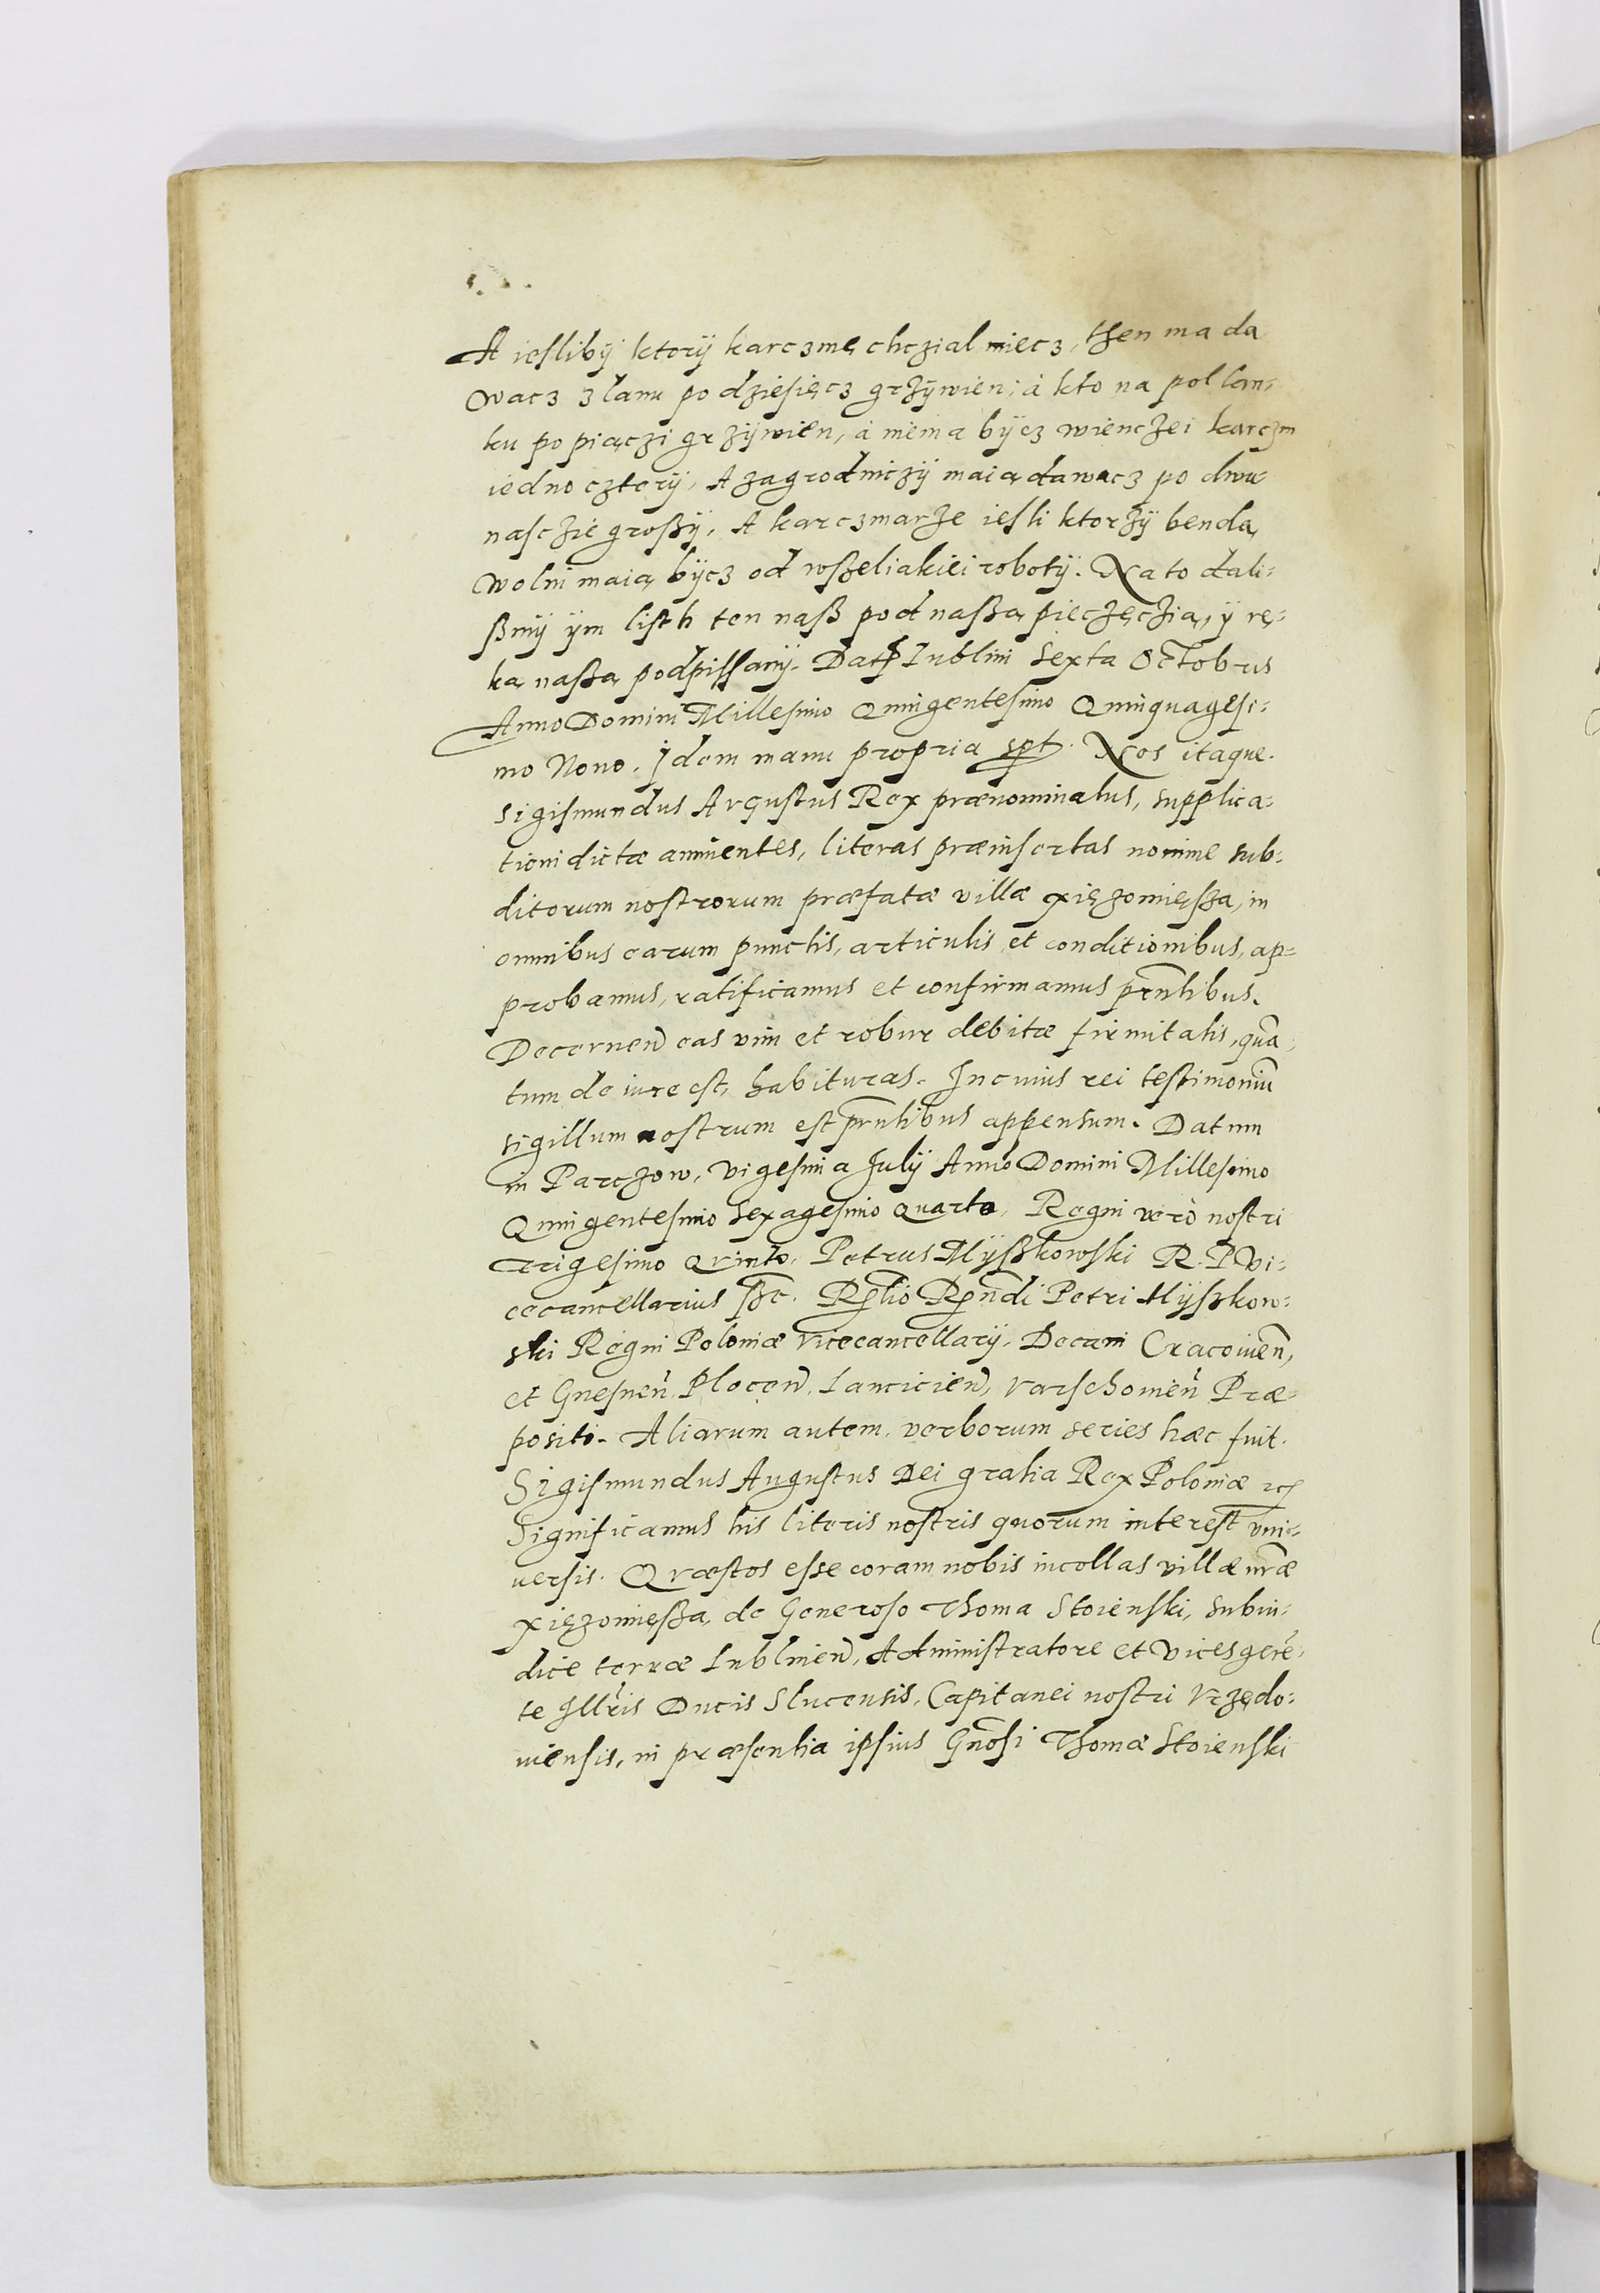 A ieslibÿ ktorÿ karczmę chcział miecz, then ma da
wacz z lanu po dziesięcz grzÿwien; á kto na pol lan-
ku po piączi grzÿwien, á niema bÿcz wienczei karczm
iedno czterÿ, A zagrodniczÿ maią dawacz po dwu
nasczie großÿ, A karczmarze iesli ktorzÿ bendą
wolni maią bÿcz od wszeliakiei robotÿ. Na to dali-
ßmÿ ÿm listh ten naß pod naßą pieczęczią, ÿ rę-
ką naßą podpissanÿ. Datꝭ Lublini Sexta Octobris
Anno Domini Millesimo Quingentesimo Quinquagesi-
mo Nono. Idem manu propria spt. Nos itaque
Sigismundus Augustus Rex prænominatus, supplica-
tioni dictæ annuentes, literas præinsertas nomine sub-
ditorum nostrorum præfatæ villæ xiężomięsza, in
omnibus earum punctis, articulis et conditionibus, ap-
probamus, ratificamus et confirmamus prn̄tibus.
Decernen̄ eas vim et robur debitæ firmitatis, quā-
tum de iure est, habituras. In cuius rei testimoniū
sigillum nostrum est prn̄tibus appensum. Datum
in Parczow, vigesima Julÿ Anno Domini Millesimo
Quingentesimo Sexagesimo Quarto, Regni verò nostri
Trigesimo Quinto. Petrus Myszkowski R. P. Vi-
cecancellarius sst. Rellio Rn̄di Petri Myszkow-
ski Regni Poloniæ Vicecancellarÿ. Decani Cracouien̄,
et Gnesnen̄. Plocen̄, Lancicien̄, Varschouien̄ Præ-
positi. Aliarum autem verborum series hæc fuit.
Sigismundus Augustus Dei gratia Rex Poloniæ etc
Significamus his literis nostris quorum interest vni-
uersis. Quæstos esse coram nobis incollas villæ nr̄æ
xiężomießa, de Generoso Thoma Stoienski, Subiu-
dice terræ Lublinen̄, Administratore et Vicesgerē-
te Illr̄is Ducis Slucensis, Capitanei nostri Vrzędo-
uiensis, in præsentia ipsius Gn̄osi Thomæ Stoienski